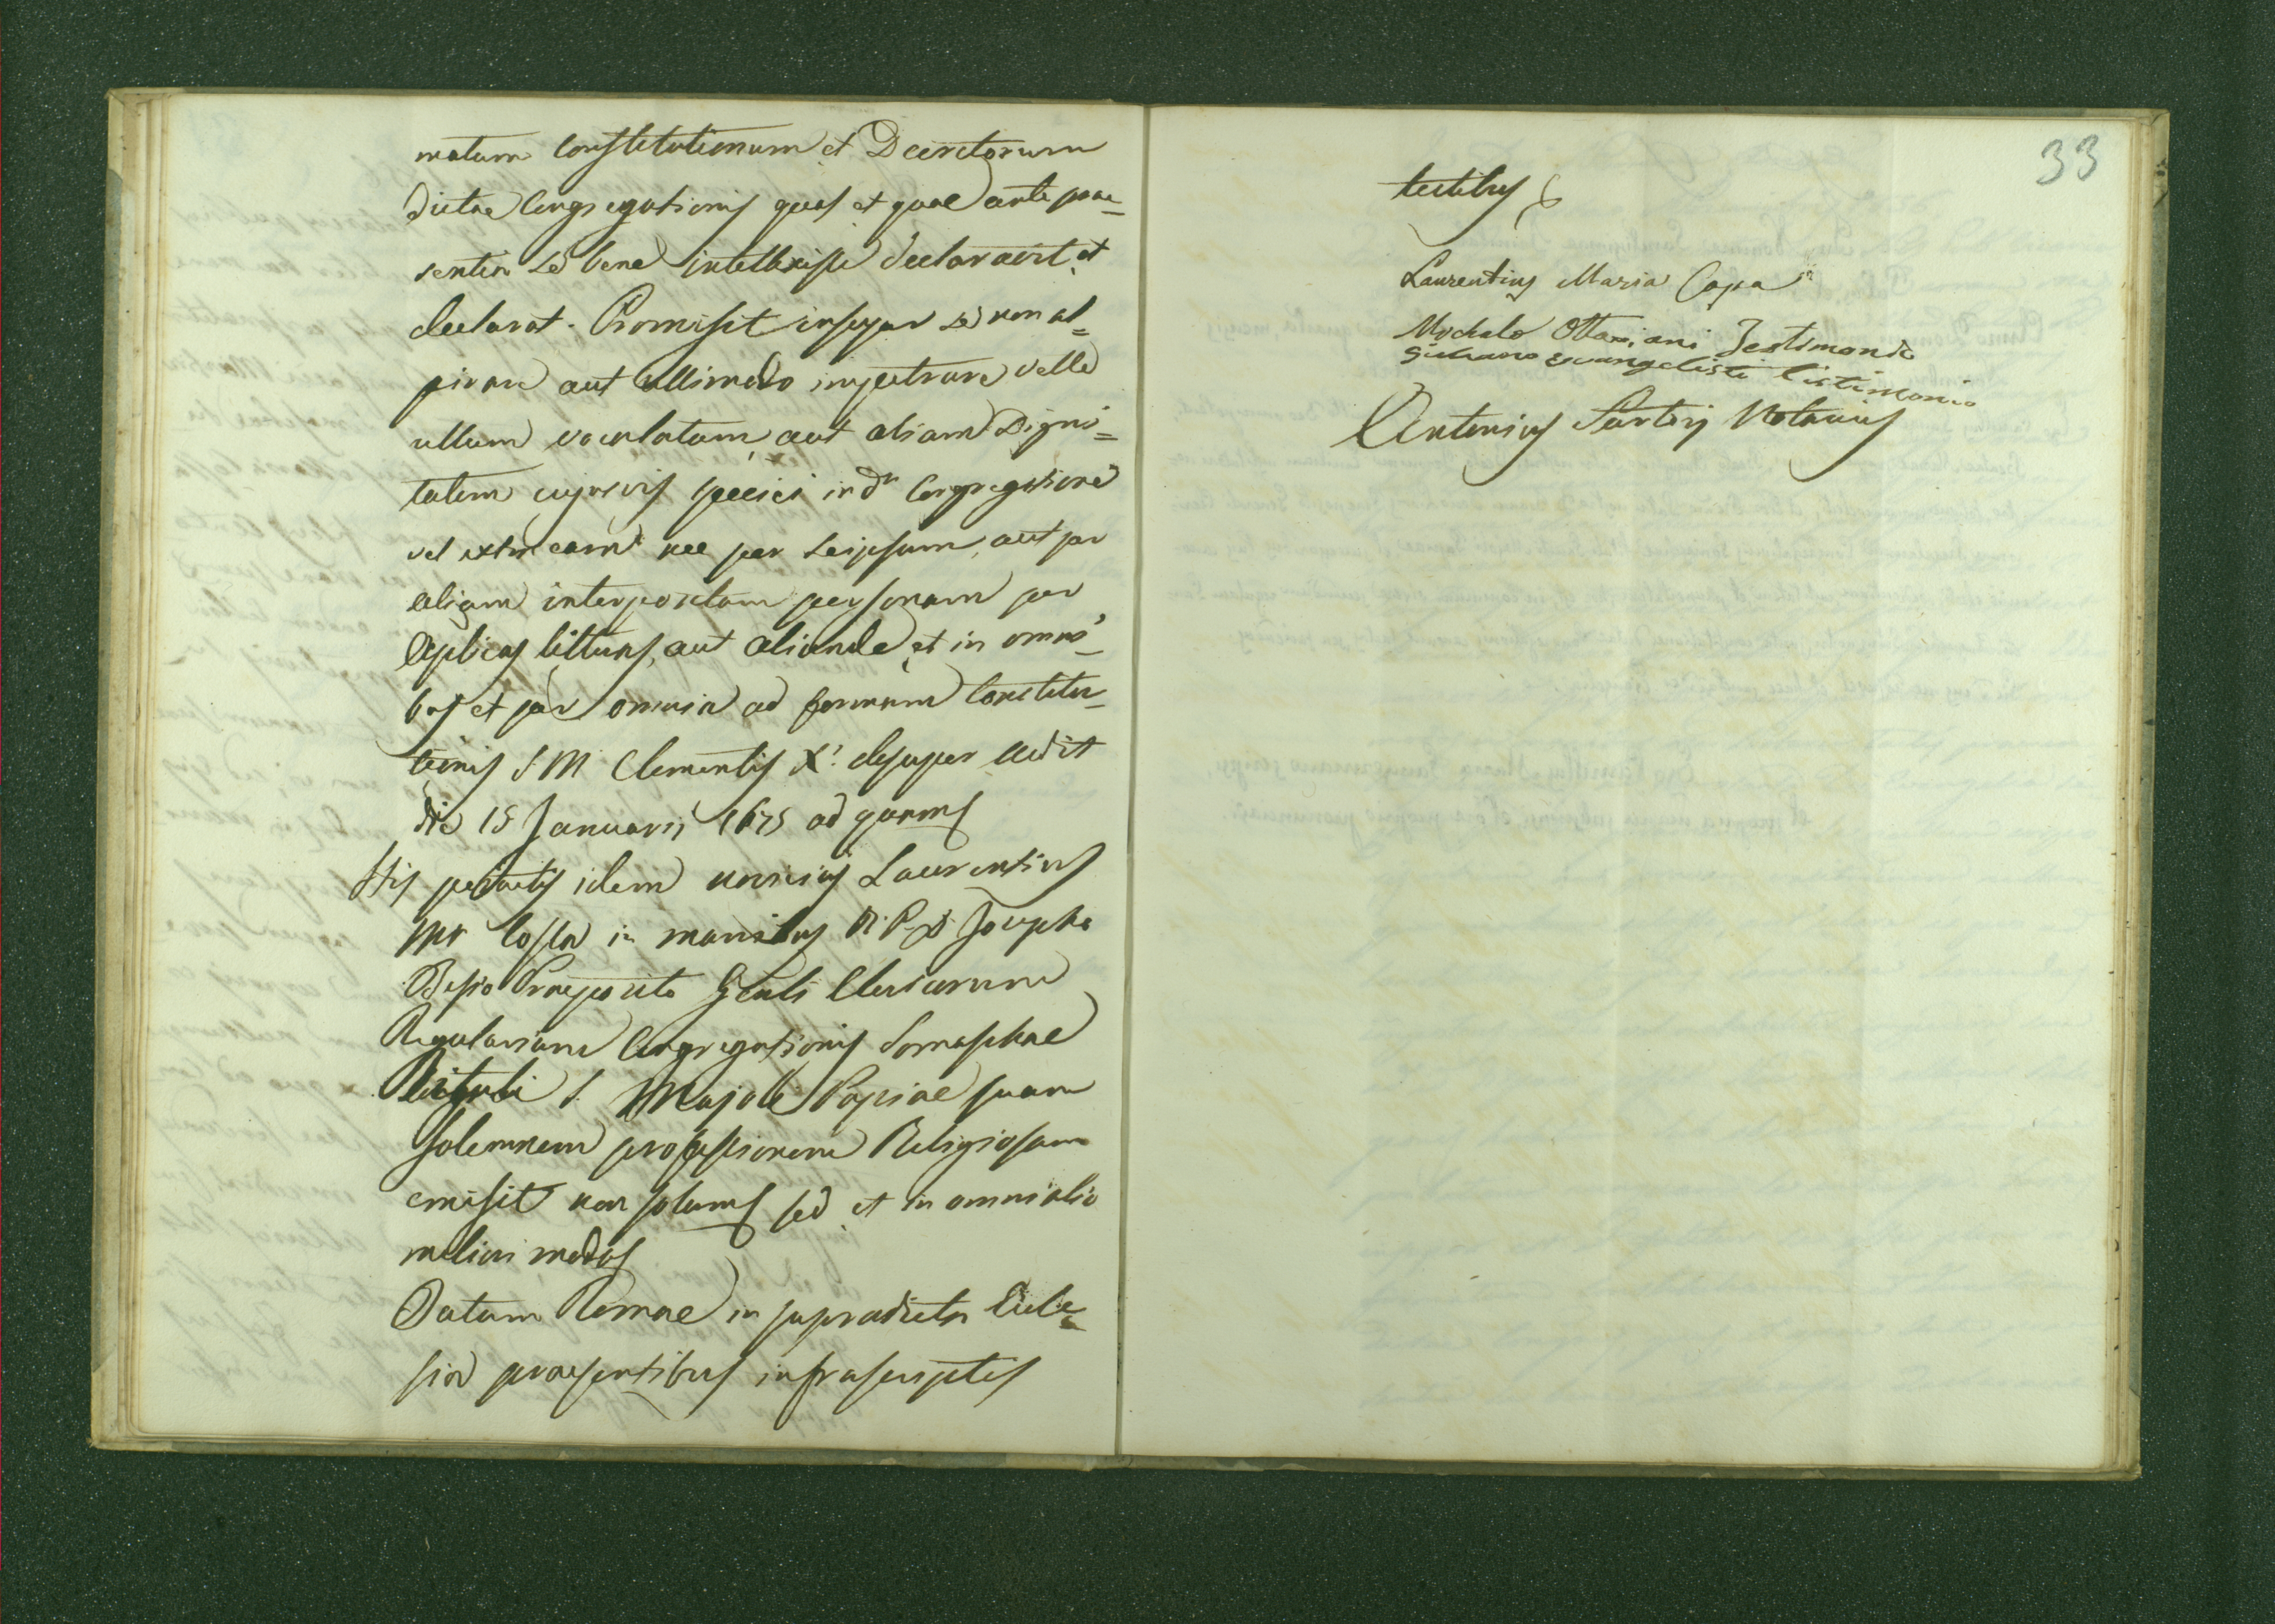 matum Constitutionum et Decretorum
dictae Congregationis quas et quae ante prae=
sentia se bene intellexisse declaravit et
declarat. Promisit insuper se non as=
pirare aut ullimodo impetrare velle
ullum vocalatum, aut aliam Digni=
tatem cujusvis speciei in da Congregatione
vel extra eam nec per seipsum, aut per
aliam interpositam personam per
Aplicas litteras, aut aliunde et in omni=
bus et per omnia ad formam Constitu=
tionis S M Clementis X. desuper edit
die 15 Januarii 1675 ad quam
His peractis idem novicius Laurentius
Ma Cossa in manibus R. P. D. Josepho
Besio Praeposito Gnli Clericorum
Regularium Congregationis Somaschae
S. Majoli Papiae suam
solemnem professionem Religiosam
emisit non solum sed et in omni alio
meliori modo
Datum Romae in supradicta Eccle=
sia praesentibus infrascriptis
33
testibus
Laurentius Maria Copa
Michele Ottaviani Testimonio
Giuliano evangelisti testimonio
Antonius Sartorj Notarius